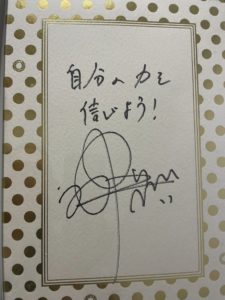 自分の力を
信じよう!